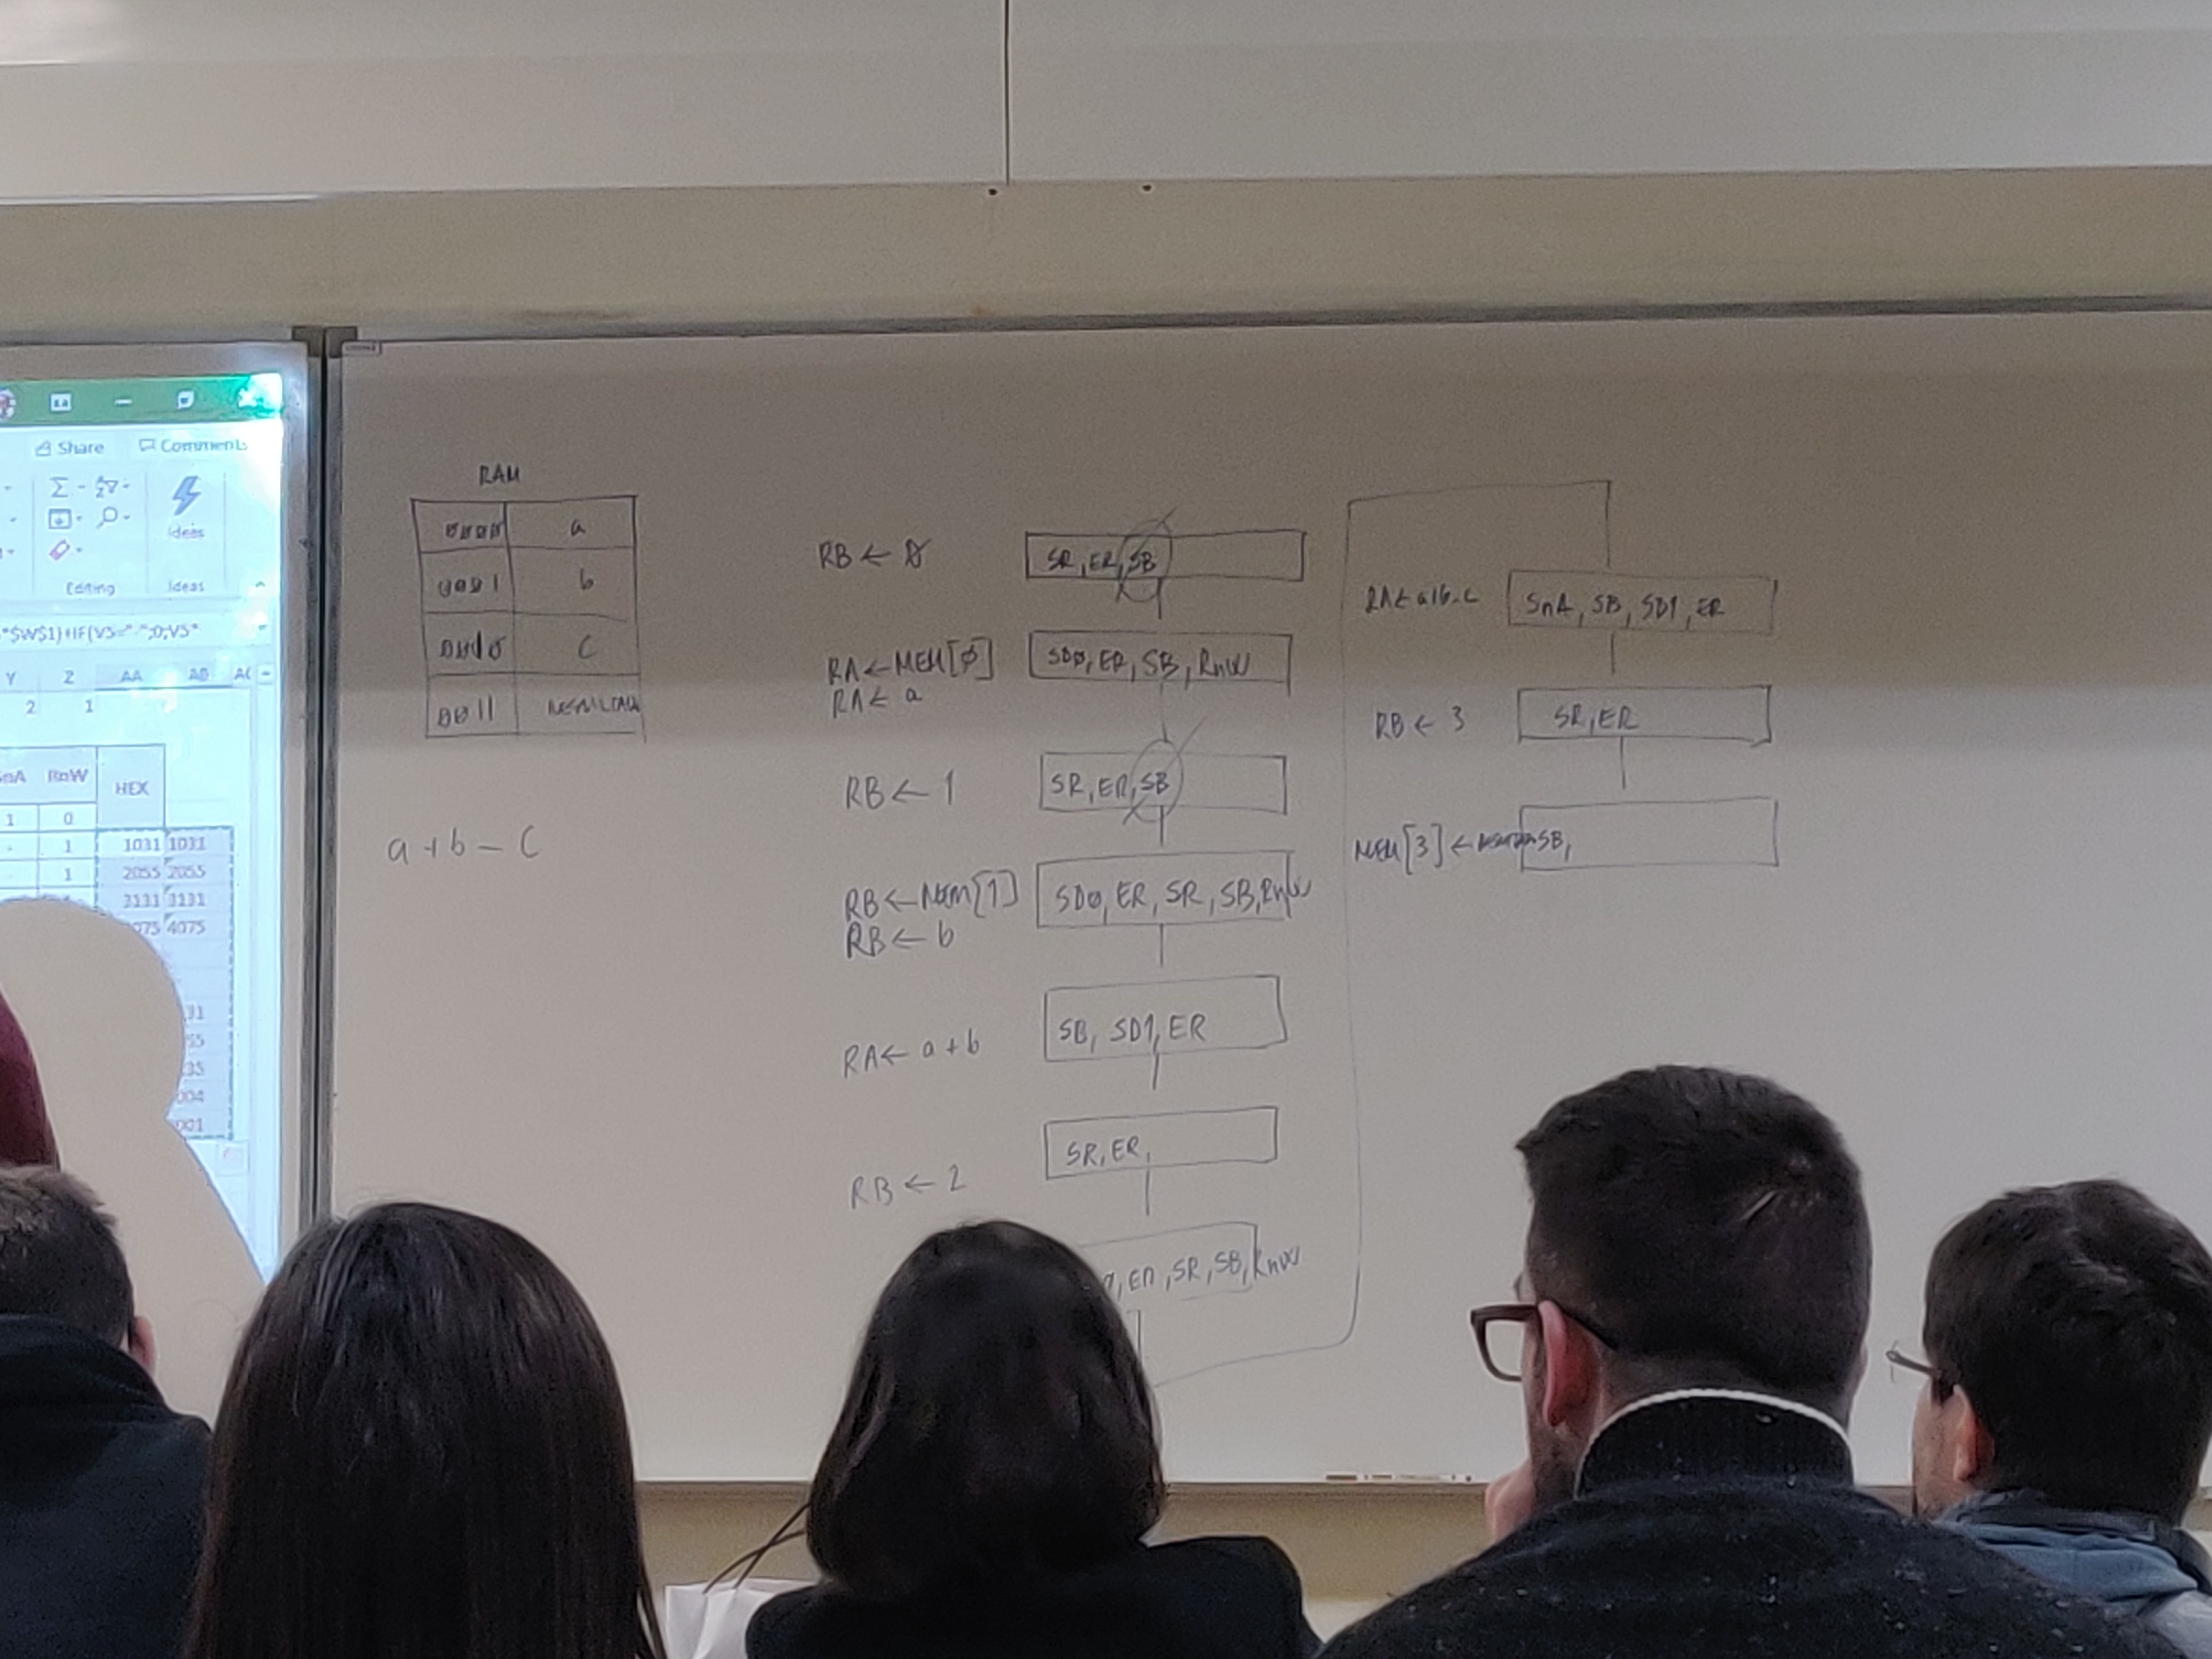 Share Comments
Ideas
Editing Ideas
*$W$1)+IF(V5="-";0;V5*
Y Z AA AB AC
2 1
SnA RnW HEX
1 0
- 1 1031 1031
1 2055 2055
3131 3131
4075
RAM
0000 a
0001 b
0010 c
0011
a + b - c
RB ← 0 SR, ER, SB
RA ← MEM[0] SD0, ER, SB, RnW
RA ← a
RB ← 1 SR, ER, SB
RB ← MEM[1] SD0, ER, SR, SB, RnW
RB ← b
RA ← a + b SB, SD1, ER
RB ← 2 SR, ER,
, ER, SR, SB, RnW
RA ← a+b-c SnA, SB, SD1, ER
RB ← 3 SR, ER
MEM[3] ← SB,